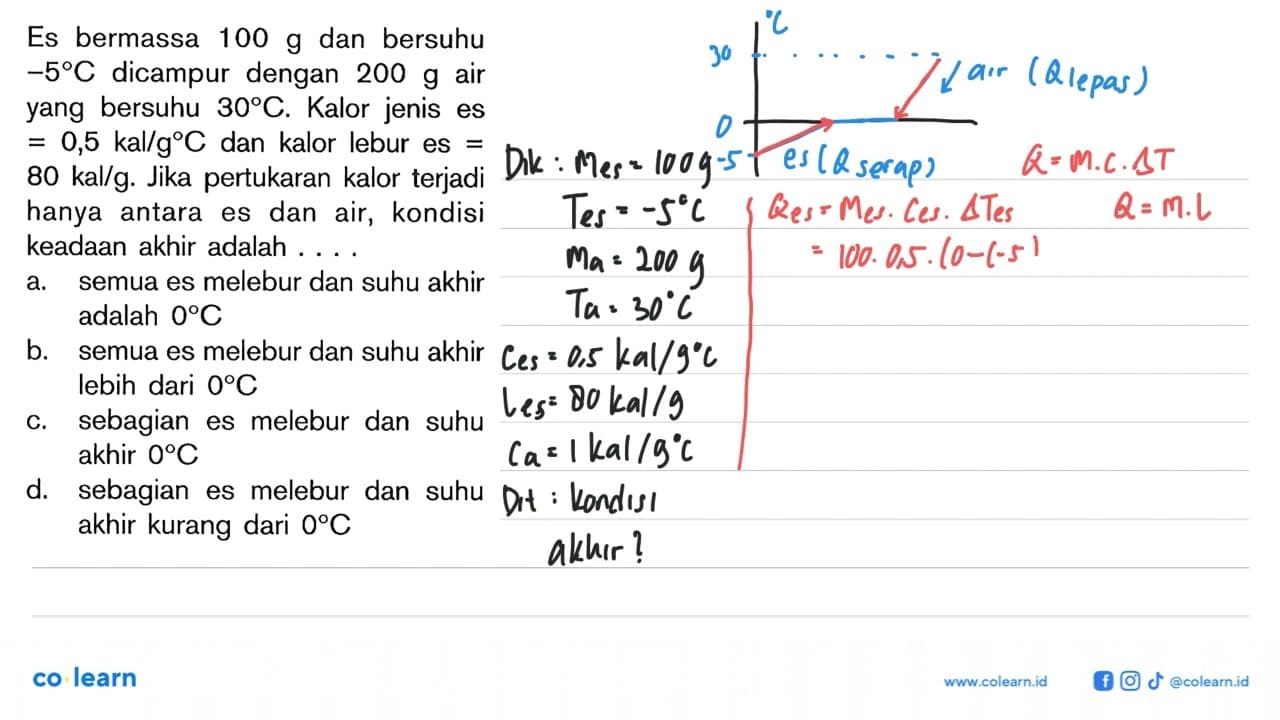 Es bermassa 100 g dan bersuhu
–5°C dicampur dengan 200 g air
yang bersuhu 30°C. Kalor jenis es
= 0,5 kal/g°C dan kalor lebur es =
80 kal/g. Jika pertukaran kalor terjadi
hanya antara es dan air, kondisi
keadaan akhir adalah . . . .
a. semua es melebur dan suhu akhir
adalah 0°C
b. semua es melebur dan suhu akhir
lebih dari 0°C
c. sebagian es melebur dan suhu
akhir 0°C
d. sebagian es melebur dan suhu
akhir kurang dari 0°C
°C
30
air (Qlepas)
0
-5
es (Q serap)
Dik : Mes = 100 g
Tes = -5°C
Ma = 200 g
Ta = 30°C
Ces = 0,5 kal/g°C
Les = 80 kal/g
Ca = 1 kal/g°C
Dit : kondisi
akhir?
Q = M.C.ΔT
Qes = Mes. Ces. ΔTes
Q = M.L
= 100. 0,5. (0-(-5)
co learn
www.colearn.id
@colearn.id